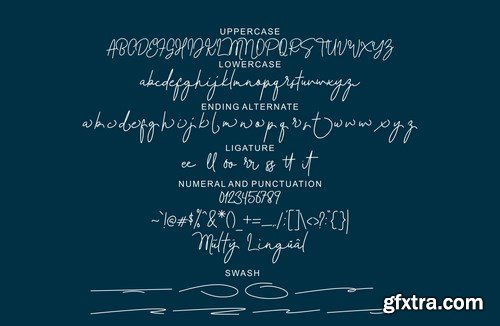 UPPERCASE
ABCDEFGHIJKLMNOPQRSTUVWXYZ
LOWERCASE
abcdefghijklmnopqrstuvwxyz
ENDING ALTERNATE
a b c d e f g h i j k l m n o p q r s t u v w x y z
LIGATURE
ee ll oo rr ss tt it
NUMERAL AND PUNCTUATION
0123456789
~`!@#$%^&*()_+=__./:;[]\<>?:"{}|
Multy Lingüâl
SWASH
gfxtra.com